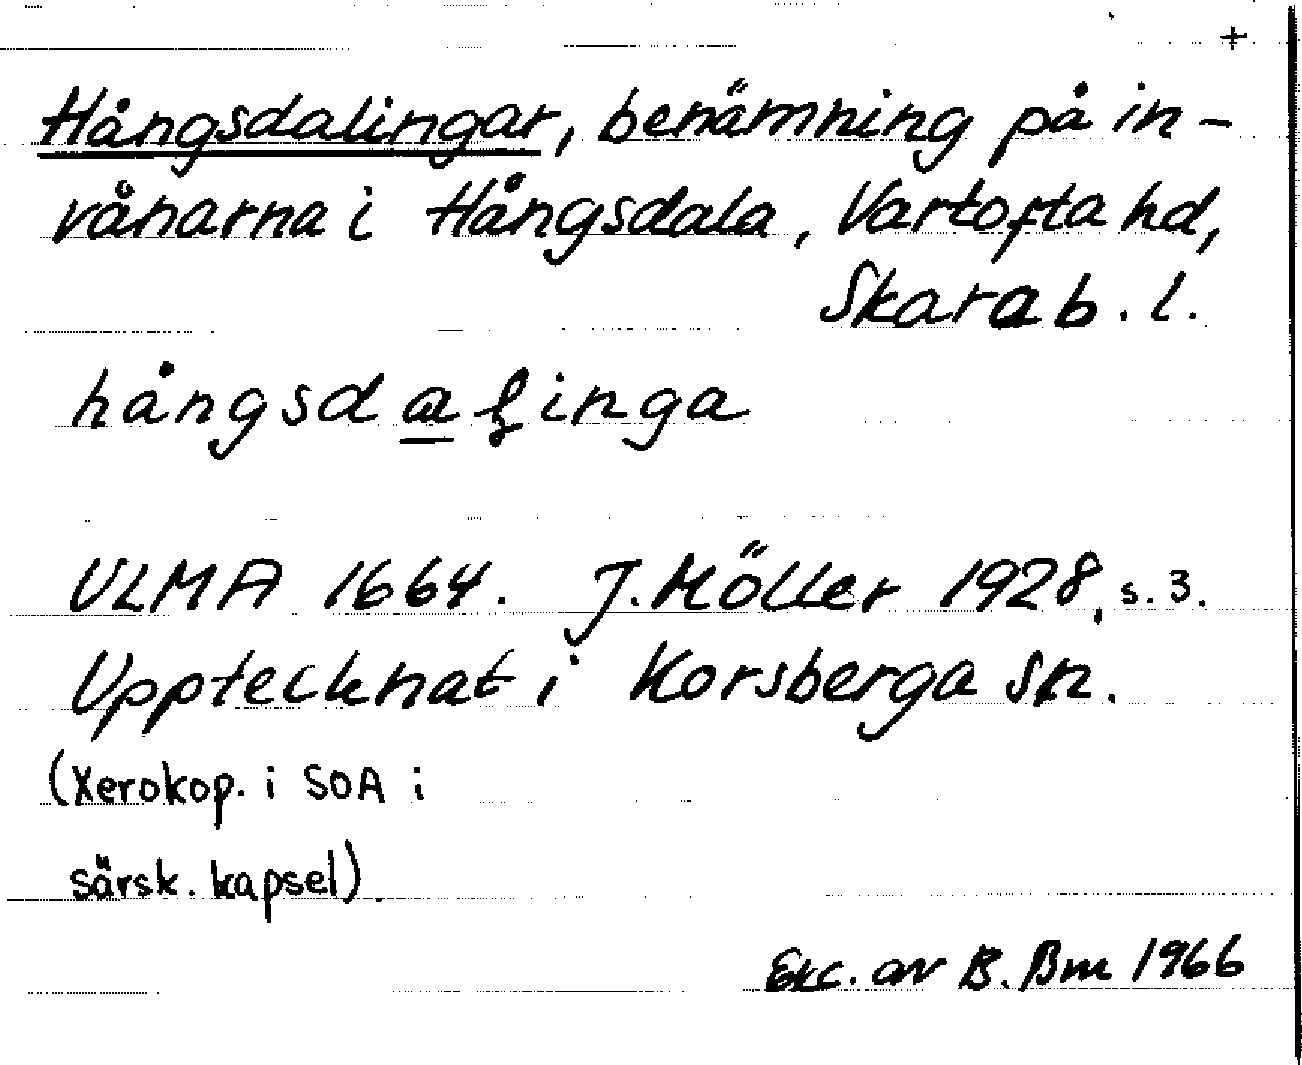 +
Hångsdalingar, benämning på in-
vånarna i Hångsdala, Vartofta hd,
Skarab. l.
hångsdaɽinga
ULMA 1664. J. Möller 1928, s. 3.
Upptecknat i Korsberga sn.
(Xerokop. i SOA i
särsk. kapsel).
Exc. av B. Bm 1966